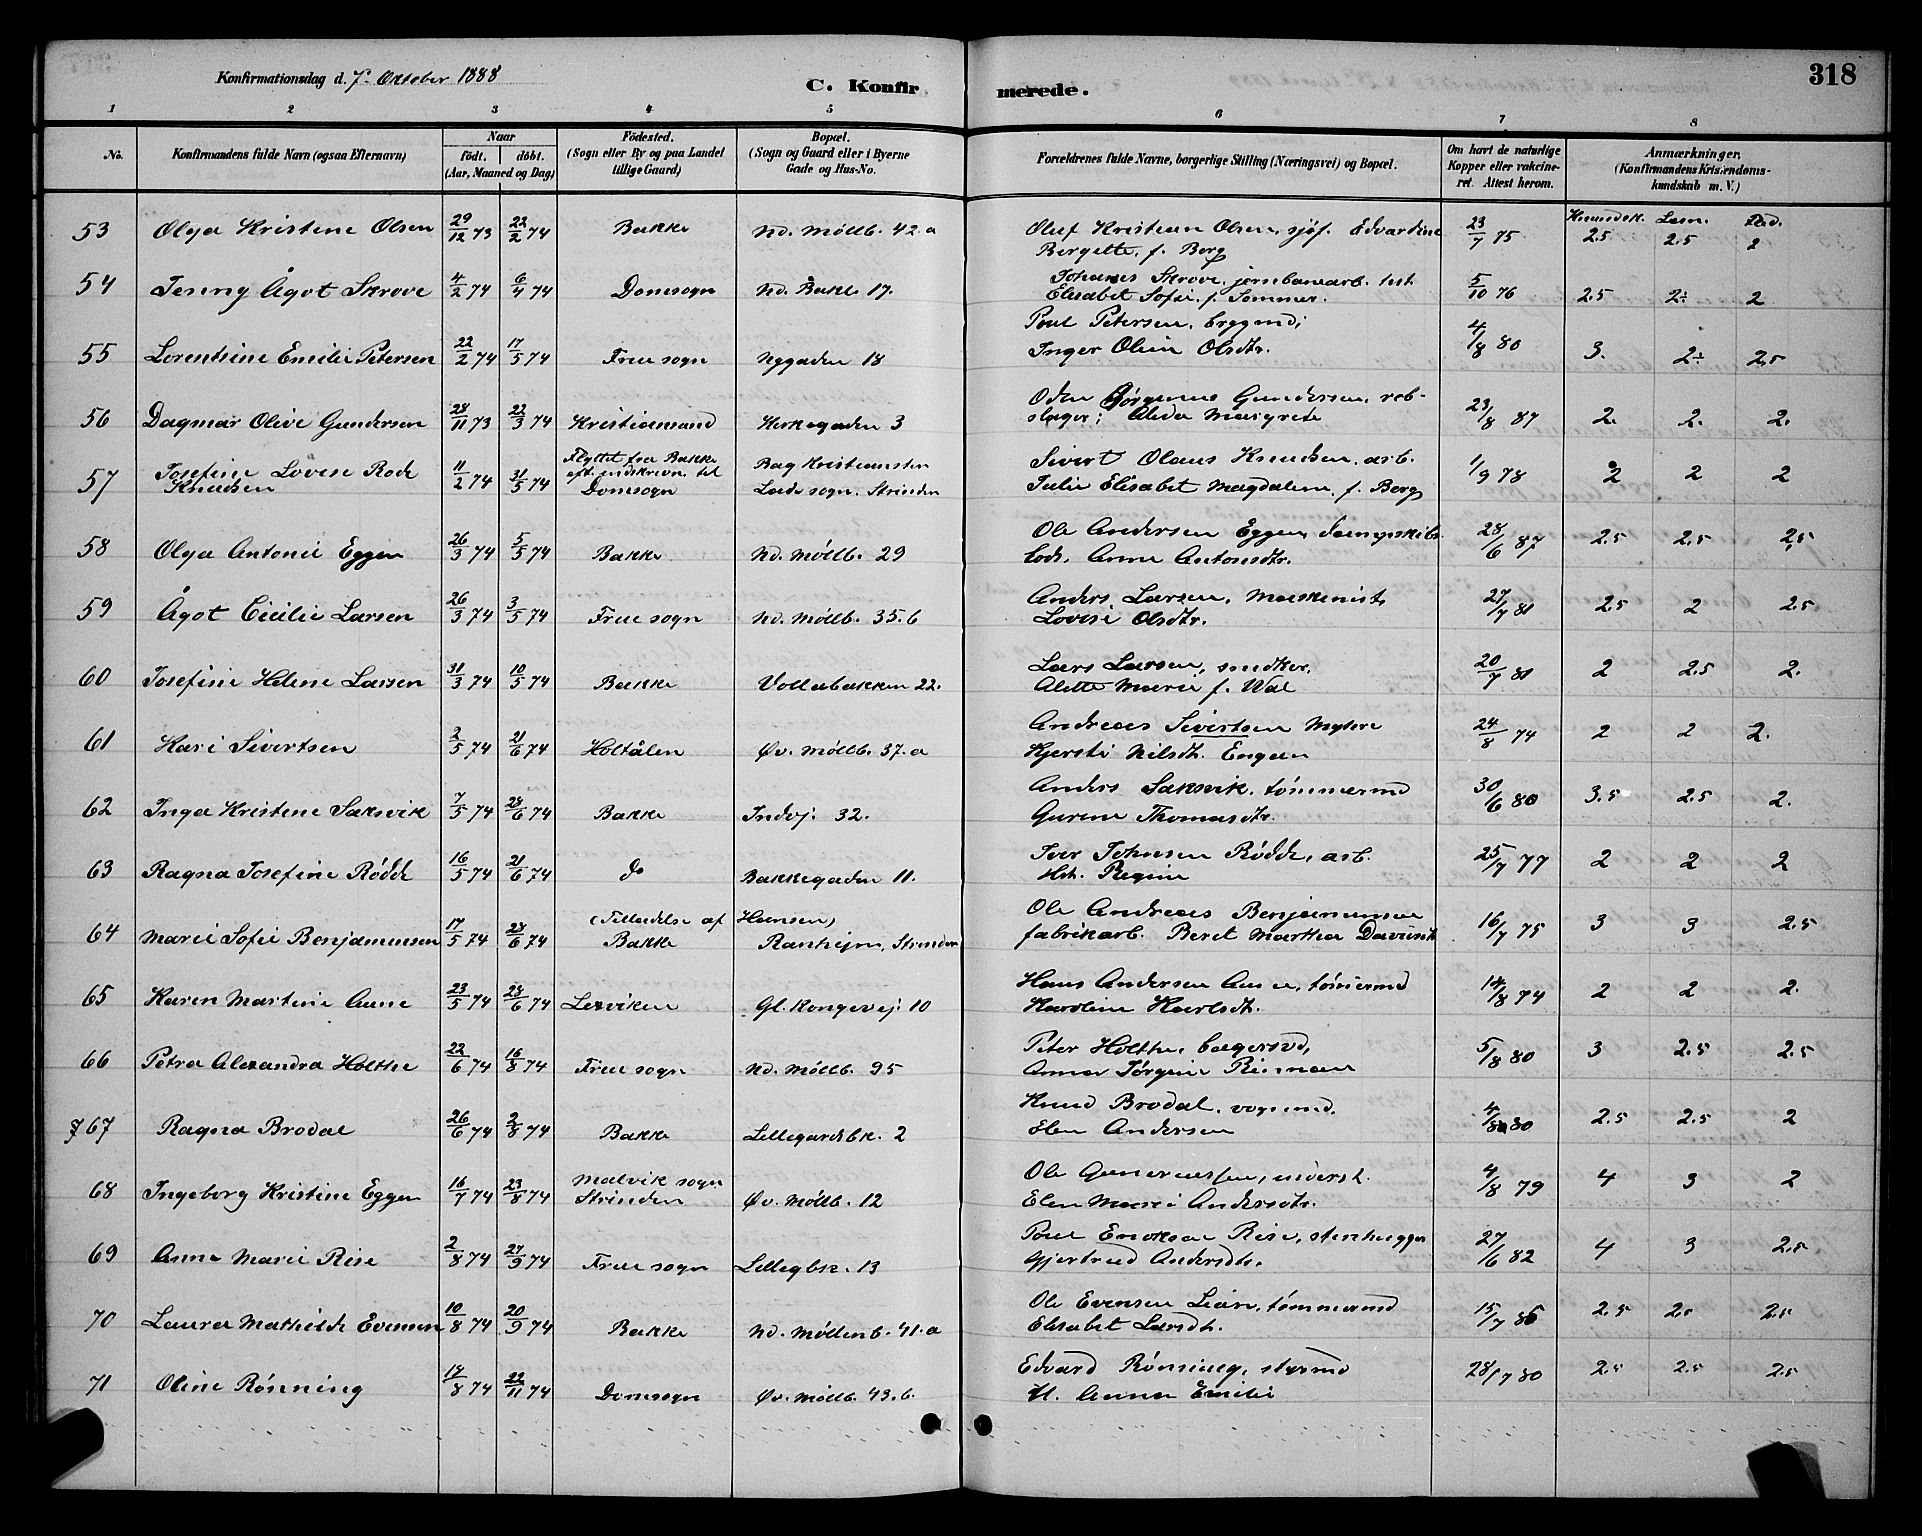 Konfirmationsdag d. 7de Oktober 1888
C. Konfirmerede.
318
1 2 3 4 5 6 7 8
No. Konfirmandens fulde Navn (ogsaa Efternavn) Naar födt. döbt. (Aar, Maaned og Dag) Födested. (Sogn eller By og paa Landet tillige Gaard) Bopæl. (Sogn og Gaard eller i Byerne Gade og Hus-No. Forældrenes fulde Navne, borgerlige Stilling (Næringsvei) og Bopæl. Om havt de naturlige Kopper eller vakcineret. Attest herom. Anmærkninger, (Konfirmandens Kristendomskundskab m. V.)
Kundsk. Læsn. Flid.
53 Olga Kristine Olsen 29/12 73 22/2 74 Bakke Nd. Möllb. 42.a Oluf Kristian Olsen, sjöf. Edvardine 23/7 75 2.5 2.5 2
Bergette, f. Berg
54 Jenny Ågot Skrove 4/2 74 6/4 74 Domsogn Nd. Bakl. 17. Johanes Skrove, jernbanearb. 5/10 76 2.5 2÷ 2
Elisabet Sofie f. Sommer.
55 Lorentsine Emilie Petersen 22/2 74 17/5 74 Frue sogn Nygaden 18 Poul Petersen, brygmd; 4/8 80 3. 2÷ 2.5
Inger Oline Olsdtr.
56 Dagmar Olive Gundersen 28/11 73 22/3 74 Kristiansund Kirkegaden 3 Oden Jörgenus Gundersen, rebslager; Alida Margrete 23/8 87 2. 2. 2.
57 Josefine Lovise Rode Knudsen 11/2 74 31/5 74 Flyttet fra Bakke eft. indskrevn. til Domsogn Bag Kristiansten Lade sogn. Strinden Sivert Olaus Knudsen, arb. 1/9 78 2 2 2
Julie Elisabet Magdalene, f. Berg
58 Olga Antonie Eggen 26/3 74 5/5 74 Bakke Nd. Möllb. 29 Ole Andersen Eggen, dampskibs 28/6 87 2.5 2.5 2.5
lods. Anne Antonsdtr.
59 Ågot Cicilie Larsen 26/3 74 3/5 74 Frue sogn Nd. Möllb. 35.b Anders Larsen, Maskinist, 27/7 81 2.5 2 2.5
Lovise Olsdtr.
60 Josefine Helene Larsen 31/3 74 10/5 74 Bakke Vollabakken 22. Lars Larsen, snedker, 20/7 81 2 2.5 2.
Alette Marie f. Wal
61 Kari Sivertsen 2/5 74 21/6 74 Holtålen Öv. Möllb. 37.a Andreas Sivertsen Myhre 24/8 74 2 2 2.
Kjersti Nilsdt. Engan
62 Inga Kristine Saksvik 7/5 74 28/6 74 Bakke Indvj. 32. Anders Saksvik, tömmermd 30/6 80 3.5 2.5 2.
Gurine Thomasdtr.
63 Ragna Josefine Rödde 16/5 74 21/6 74 do Bakkegaden 11. Iver Johnsen Rödde, arb. 25/7 77 2 2 2
Hst. Regine
64 Marie Sofie Benjaminsen 17/5 74 28/6 74 (Tilladelse af Hansen) Bakke Ranheim, Strinden Ole Andreas Benjaminsen 16/7 75 3 3 2.5
fabrikarb. Beret Martha Davidsdt.
65 Karen Martine Aune 23/5 74 28/6 74 Lexviken Gl. Kongevej. 10 Hans Andersen Aune, tömermd 14/8 74 2 2 2.
Karoline Karlsdt.
66 Petra Alexandra Holthe 22/6 74 16/8 74 Frue sogn Nd. Möllb. 95 Peter Holthe, bagersvd, 5/8 80 3 2.5 2.5
Anna Jörgine Riiman
67 Ragna Brodal 26/6 74 2/8 74 Bakke Lillegårdsbk. 2 Knud Brodal, vognmd. 4/8 80 2.5 2.5 2
Elen Andersen
68 Ingeborg Kristine Eggen 16/7 74 23/8 74 Malvik sogn Strinden Öv. Möllb. 12 Ole Gunneriussen, underst. 4/8 79 4 3 2
Elen Marie Andersdtr.
69 Anna Marie Rise 2/8 74 27/9 74 Frue sogn Lillegbk. 13 Poul Eriksen Rise, stenhugger 27/6 82 4 3 2.5
Gjertrud Andersdt.
70 Laura Mathilde Evensen 10/8 74 20/9 74 Bakke Nd. Möllenb. 41.a Ole Evensen Lian, tömmermd 15/7 86 2.5 2.5 2.5
Elisabet Larsdt.
71 Oline Rönning 18/8 74 22/11 74 Domsogn Öv. Möllb. 43.b. Edvard Rönning, styrmd 28/7 80 2.5 2.5 2.5
H. Anna Emilie